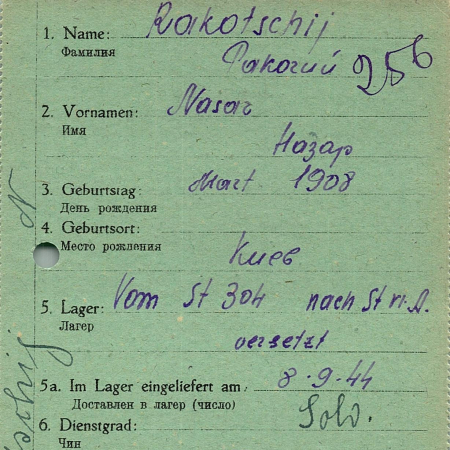 1. Name: Rakotschij
Фамилия Ракочий 256
2. Vornamen: Nasar
Имя Назар
3. Geburtstag: Mart 1908
День рождения
4. Geburtsort:
Место рождения Киев
5. Lager: Vom St 304 nach St VI.A.
Лагер versetzt
5a. Im Lager eingeliefert am: 8-9-44
Доставлен в лагер (число)
6. Dienstgrad: Sold.
Чин